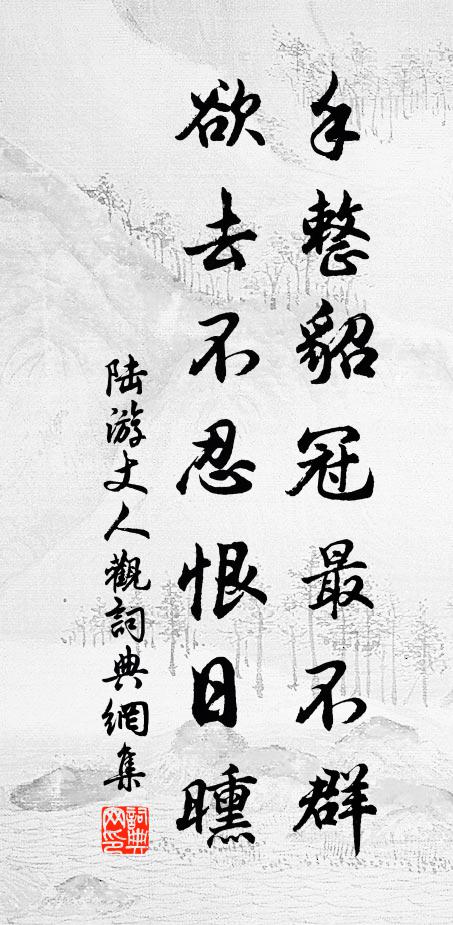 手整貂冠最不群
欲去不忍恨日曛
陆游丈人觀詞典網集
詞典
网印